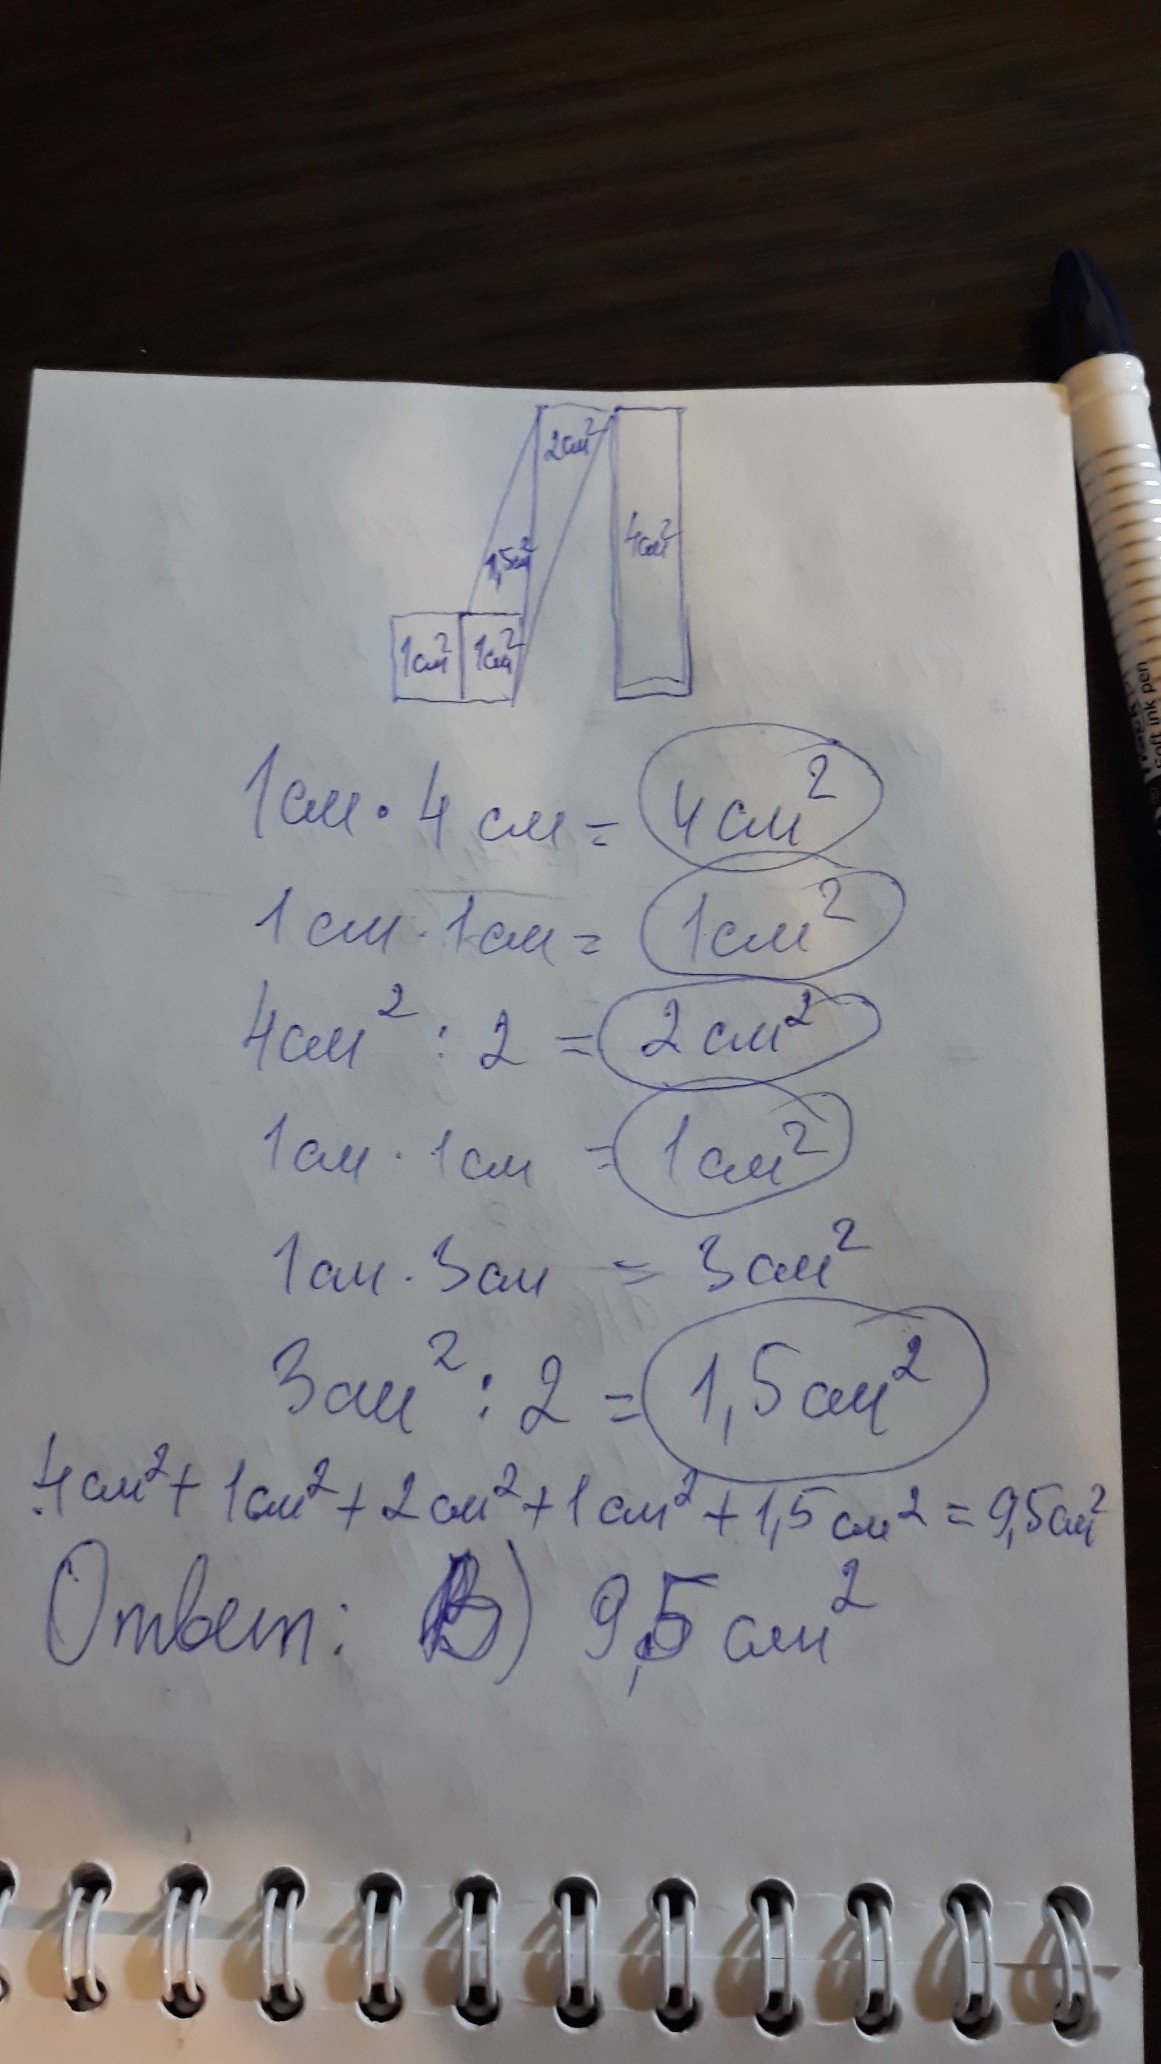 2см²
1,5см²
4см²
1см² 1см²
1см · 4 см = 4см²
1см · 1см = 1см²
4см² : 2 = 2см²
1см · 1см = 1см²
1см · 3см = 3см²
3см² : 2 = 1,5см²
4см² + 1см² + 2см² + 1см² + 1,5см² = 9,5см²
Ответ: В) 9,5 см²
soft ink pen